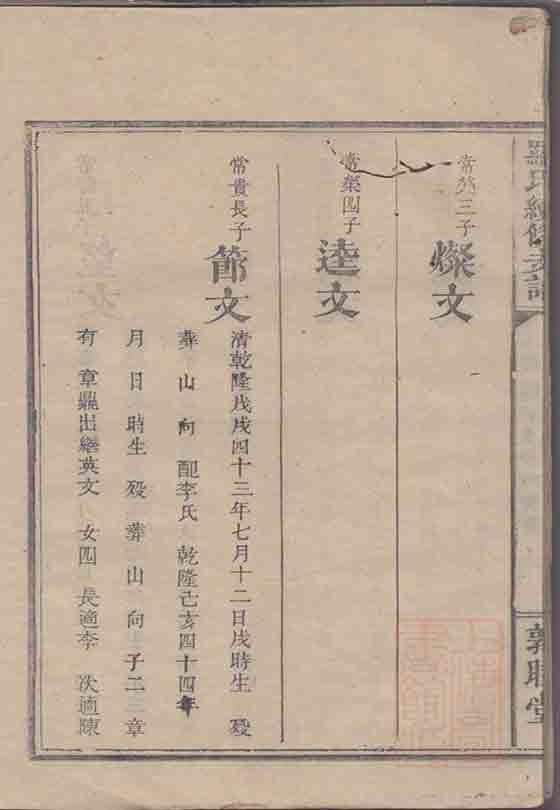 羅氏續修支譜
敦睦堂
常發三子
燦文
常榮四子
逵文
常貴長子
節文
清乾隆戊戌四十三年七月十二日戌時生 歿
葬 山 向 配李氏 乾隆己亥四十四年
月 日 時生 歿 葬 山 向 子二 章
有 章鼎出繼英文 女四 長適李 次適陳